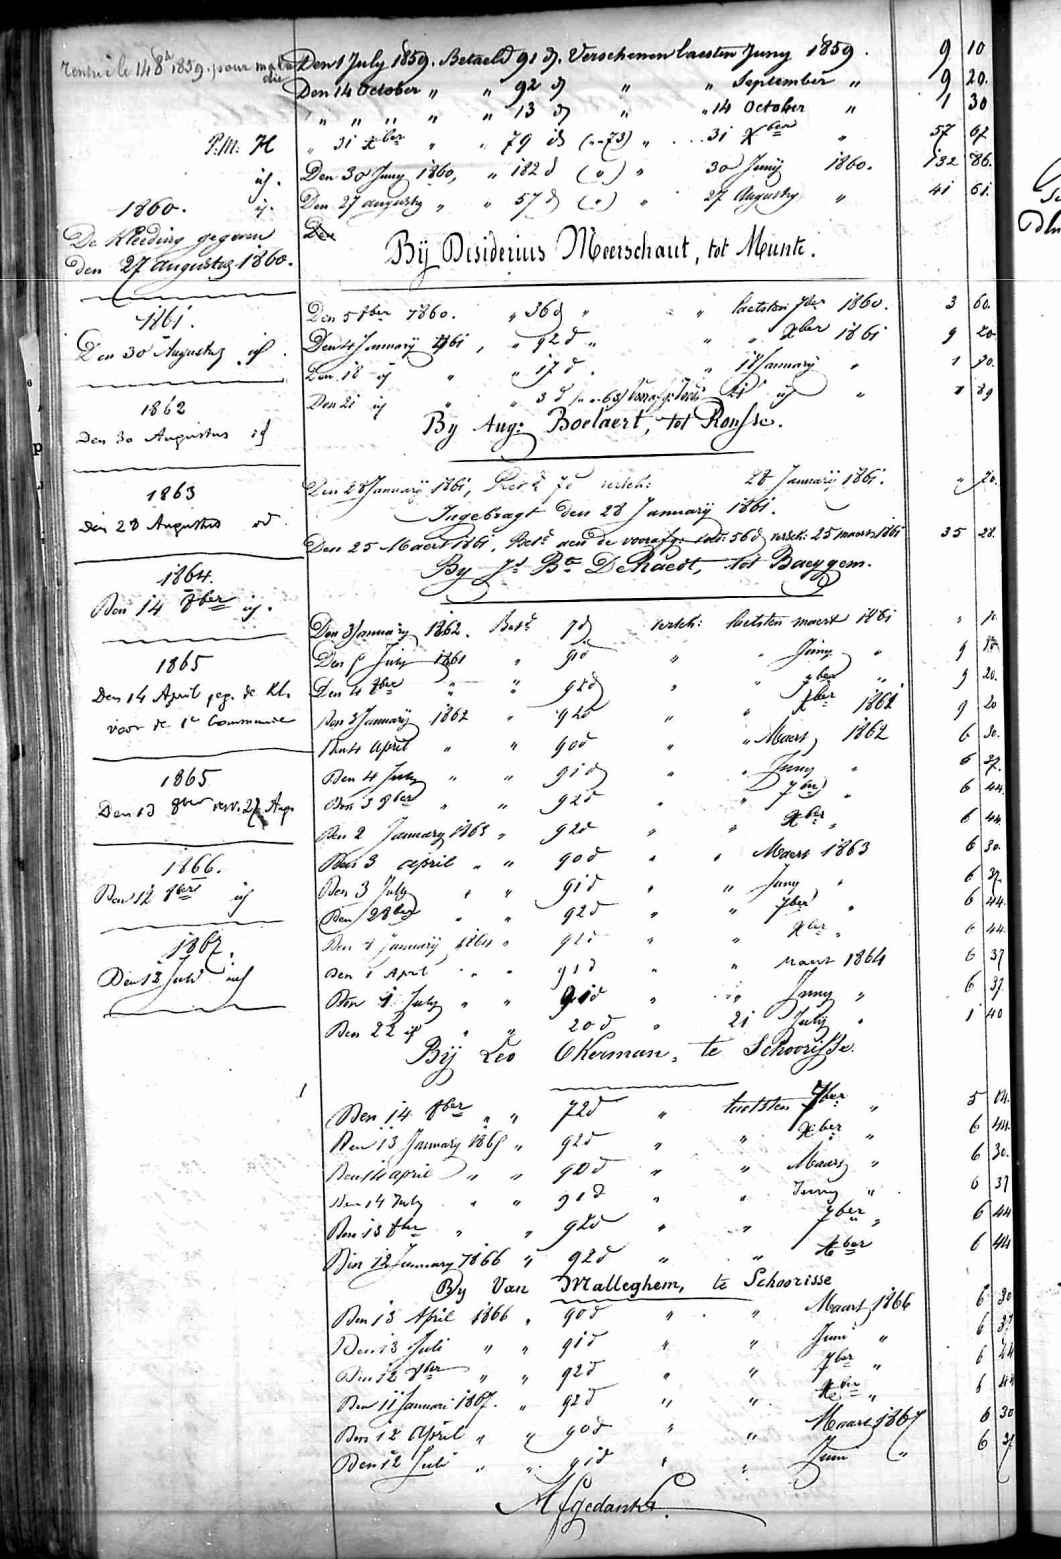 rentré le 14 8br 1859. pour maladie
P.M. H
id.
id.
1860.
De Kleeding gegeven
den 27 augustus 1860.
1861.
Den 30 Augustus id.
1862
Den 30 Augustus id
1863
Den 28 Augustus id.
1864.
Den 14 8ber id.
1865
Den 14 April geg. de Kl.
voor de 1e Communie
1865
Den 13 8ber verv. 27 Aug.
1866.
Den 12 8ber id
1867.
Den 12 Juli id
Den 1 July 1859. Betaeld 91 d. Verschenen laesten Juny 1859. 9 10
Den 14 October " " 92 d " " September " 9 20.
" " " " " 13 d " " 14 October " 1 30
" 31 Xber " " 79 d (..73) " 31 Xber " 57 67
Den 30 Juny 1860, " 182 d (") " 30 Junij 1860. 132 86.
Den 27 augusty " " 57 d (") " 27 Augusty " 41 61.
Den
Bij Disiderius Meerschaut, tot Munte.
Den 5 8ber 1860. " 36 d " " " laetsten 7ber 1860. 3 60.
Den 4 Januarij 1861, " 92 d " " " Xber 1861 9 20.
Den 18 ij " " 17 d. " 18 Januarij " 1 70.
Den 21 ij " " 3 d 21 ij " 1 89
By Aug: Boelaert, tot Ronsse.
Den 28 Januarij 1861, Bet.d 7 d versch: 28 Januarij 1861. " 70.
Ingebragt den 28 January 1861.
Den 25 Maert 1861, Bet.d aen de voorafg: 56 d versch: 25 maert 1861 35 28.
By Js Bte DeRaedt, tot Baeygem.
Den 3 January 1862. Bet.d 7 d versch: laetsten maert 1861 "
Den July 1861 " 91 d " " Juny " 9 10
Den 4 8ber " " 92 d " " 7ber " 9 20.
Den 3 January 1862 " 92 d " " Xber 1861 9 20
Den 4 April " " 90 d " " Maert 1862 6 30.
Den 4 July " " 91 d " " Juny " 6 37.
Den 3 8ber " " 92 d " " 7ber " 6 44.
Den 2 January 1863 " 92 d " " Xber " 6 44
Den 3 April " " 90 d " " Maert 1863 6 30.
Den 3 July " " 91 d " " Juny " 6 37.
Den 2 8ber " " 92 d " " 7ber " 6 44.
Den 4 January 1864 " 92 d " " Xber " 6 44.
Den 1 April " " 91 d " " Maert 1864 6 37
Den 1 July " " 91 d " " Juny " 6 37.
Den 22 id " " 20 d " 21 July " 1 40
Bij Leo Okerman, te Schoorisse.
Den 14 8ber " " 72 d " laetsten 7ber " 5 04.
Den 13 January 1865 " 92 d " " Xber " 6 44.
Den 14 april " " 90 d " " Maart " 6 30.
Den 14 July " " 91 d " " Juny " 6 37
Den 13 8ber " " 92 d " " 7ber " 6 44
Den 12 January 1866 " 92 d " " Xber 6 44
By Van Malleghem, te Schoorisse
Den 13 April 1866 " 90 d " " Maart 1866 6 30
Den 13 Juli " " 91 d " " Juni " 6 37
Den 12 8ber " " 92 d " " 7ber " 6 44
Den 11 Januari 1867. " 92 d " " Xber " 6 44
Den 12 April " " 90 d " " Maart 1867 6 30
Den 12 Juli " " 91 d " " Juni " 6 37
Afgedankt.